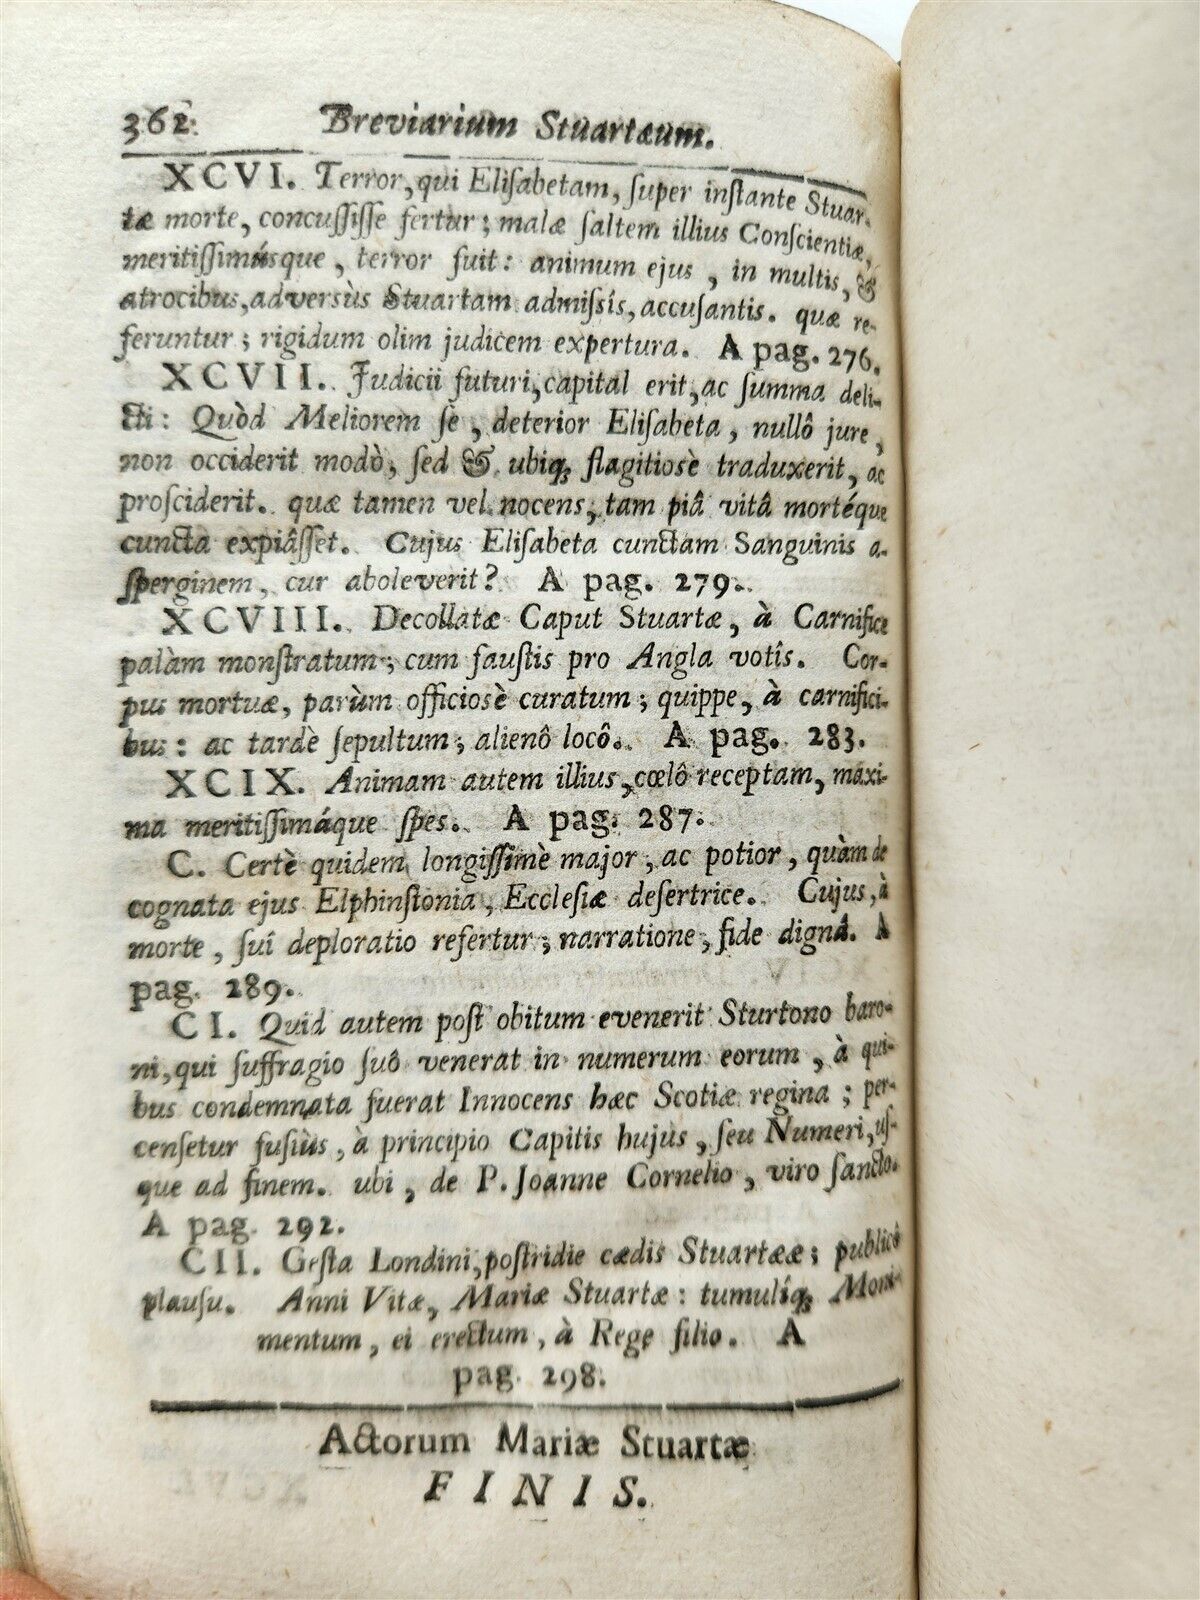 362. Breviarium Stuartæum.
XCVI. Terror, qui Eliſabetam, ſuper inſtante Stuar-
tæ morte, concuſſiſſe fertur; malæ ſaltem illius Conſcientiæ,
meritiſſimúsque, terror fuit: animum ejus, in multis, &
atrocibus, adversùs Stuartam admiſsîs, accuſantis. quæ re-
feruntur; rigidum olim judicem expertura. A pag. 276.
XCVII. Judicii futuri, capital erit, ac ſumma deli-
cti: Quòd Meliorem ſè, deterior Eliſabeta, nullô jure,
non occiderit modò, ſed & ubiq; flagitiosè traduxerit, ac
proſciderit. quæ tamen vel nocens, tam piâ vitâ mortéque
cuncta expiâſſet. Cujus Eliſabeta cunctam Sanguinis a-
ſperginem, cur aboleverit? A pag. 279.
XCVIII. Decollatæ Caput Stuartæ, à Carnifice
palàm monſtratum; cum fauſtis pro Angla votîs. Cor-
pus mortuæ, parùm officiosè curatum; quippe, à carnifici-
bus: ac tardè ſepultum; alienô locô. A pag. 283.
XCIX. Animam autem illius, cœlô receptam, maxi-
ma meritiſſimáque ſpes. A pag. 287.
C. Certè quidem longiſſimè major, ac potior, quàm de
cognata ejus Elphinſtonia, Eccleſiæ deſertrice. Cujus, à
morte, ſuî deploratio refertur; narratione, fide dignâ. A
pag. 289.
CI. Quid autem poſt obitum evenerit Sturtono baro-
ni, qui ſuffragio ſuô venerat in numerum eorum, à qui-
bus condemnata fuerat Innocens hæc Scotiæ regina; per-
cenſetur fusiùs, à principio Capitis hujus, ſeu Numeri, uſ-
que ad finem. ubi, de P. Joanne Cornelio, viro ſancto.
A pag. 292.
CII. Geſta Londini, poſtridie cædis Stuartææ; publicô
plauſu. Anni Vitæ, Mariæ Stuartæ: tumulíq; Moni-
mentum, ei erectum, à Rege filio. A
pag. 298.
Actorum Mariæ Stuartæ
FINIS.